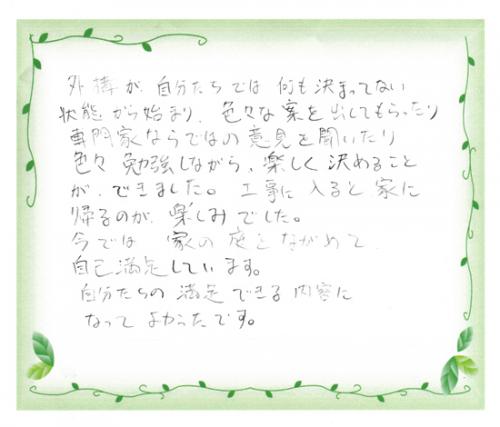 外構が、自分たちでは 何も決まってない
状態から始まり、色々な案を出してもらったり
専門家ならではの意見を聞いたり
色々 勉強しながら、楽しく 決めること
が、できました。工事に 入ると 家に
帰るのが、楽しみでした。
今では 家の 庭をながめて
自己満足しています。
自分たちの 満足できる 内容に
なって よかったです。